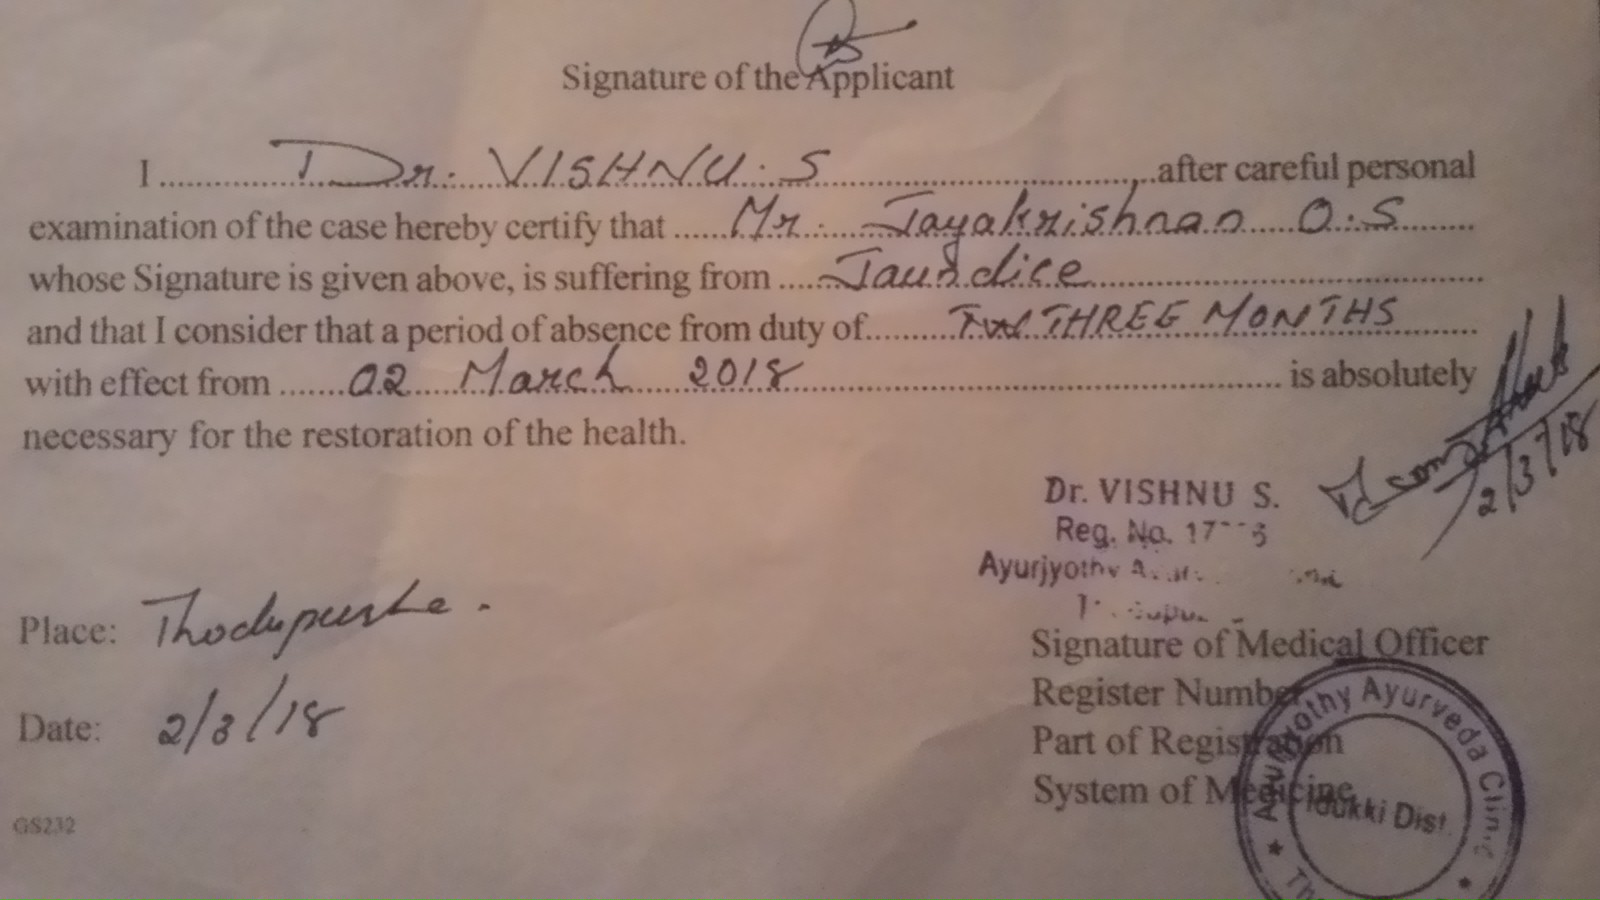 Signature of the Applicant
I Dr. VISHNU. S after careful personal
examination of the case hereby certify that Mr. Jayakrishnan O.S
whose Signature is given above, is suffering from Jaundice
and that I consider that a period of absence from duty of THREE MONTHS
with effect from 02 March 2018 is absolutely
necessary for the restoration of the health.
Dr. VISHNU S.
Reg. No.
Ayurjyothy
2/3/18
Place: Thodupuzha.
Date: 2/3/18
Signature of Medical Officer
Register Number
Part of Registration
System of Medicine
othy Ayurveda Clinic
Idukki Dist.
GS232